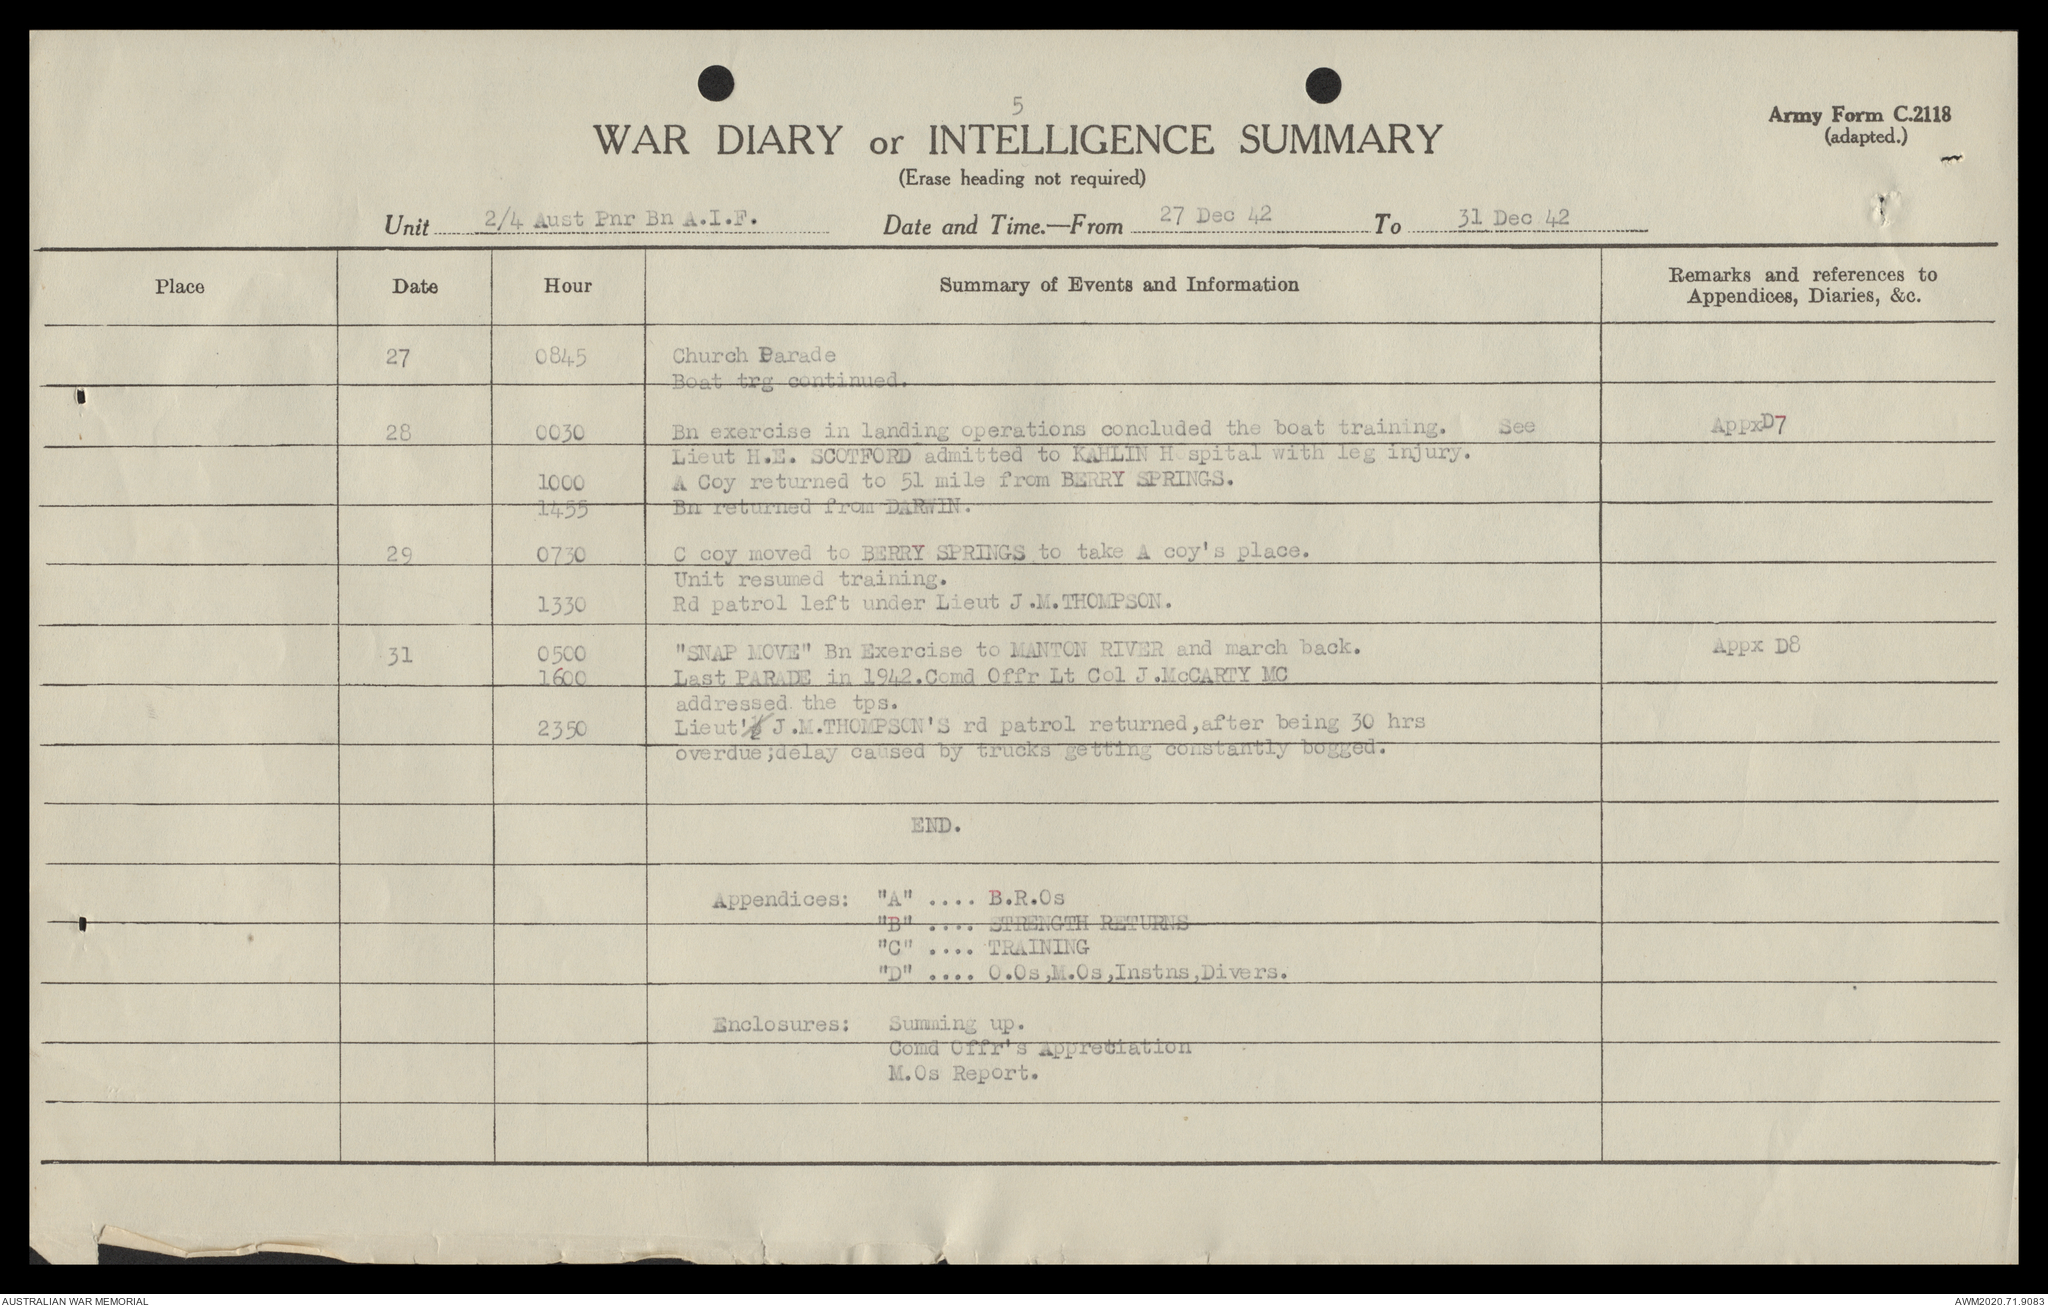 5
Army Form C.2118
(adapted.)
WAR DIARY or INTELLIGENCE SUMMARY
(Erase heading not required)
Unit 2/4 Aust Pnr Bn A.I.F. Date and Time.—From 27 Dec 42 To 31 Dec 42
Place Date Hour Summary of Events and Information Remarks and references to Appendices, Diaries, &c.
27 0845 Church Parade
Boat trg continued.
28 0030 Bn exercise in landing operations concluded the boat training. See AppxD7
Lieut H.E. SCOTFORD admitted to KAHLIN H spital with leg injury.
1000 A Coy returned to 51 mile from BERRY SPRINGS.
1455 Bn returned from DARWIN.
29 0730 C coy moved to BERRY SPRINGS to take A coy's place.
Unit resumed training.
1330 Rd patrol left under Lieut J.M.THOMPSON.
31 0500 "SNAP MOVE" Bn Exercise to MANTON RIVER and march back. Appx D8
1600 Last PARADE in 1942.Comd Offr Lt Col J.McCARTY MC
addressed the tps.
2350 Lieut' J.M.THOMPSON'S rd patrol returned,after being 30 hrs
overdue;delay caused by trucks getting constantly bogged.
END.
Appendices: "A" .... B.R.Os
"B" .... STRENGTH RETURNS
"C" .... TRAINING
"D" .... O.Os,M.Os,Instns,Divers.
Enclosures: Summing up.
Comd Offr's Appreciation
M.Os Report.
AUSTRALIAN WAR MEMORIAL AWM2020.71.9083